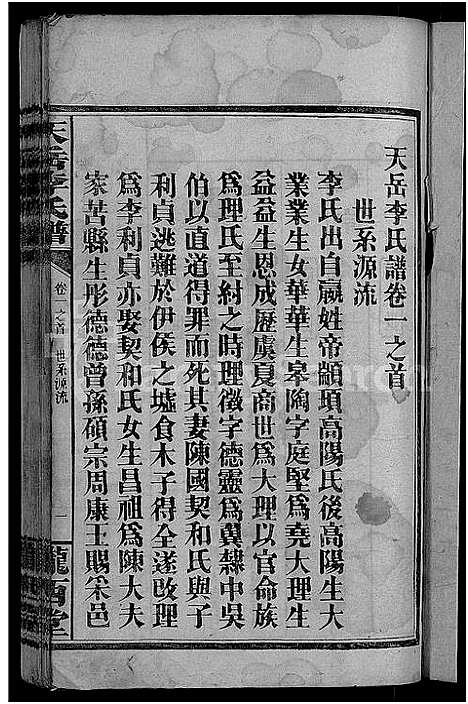 天岳李氏譜卷一之首
世系源流
李氏出自嬴姓帝顓頊高陽氏後高陽生大
業業生女華華生皋陶字庭堅爲堯大理生
益益生恩成歷虞夏商世爲大理以官命族
爲理氏至紂之時理徵字德靈爲翼隸中吳
伯以直道得罪而死其妻陳國契和氏與子
利貞逃難於伊侯之墟食木子得全遂改理
爲李利貞亦娶契和氏女生昌祖爲陳大夫
家苦縣生彤德德曾孫碩宗周康王賜采邑
天岳李氏譜
卷一之首 世系源流
一
隴西堂